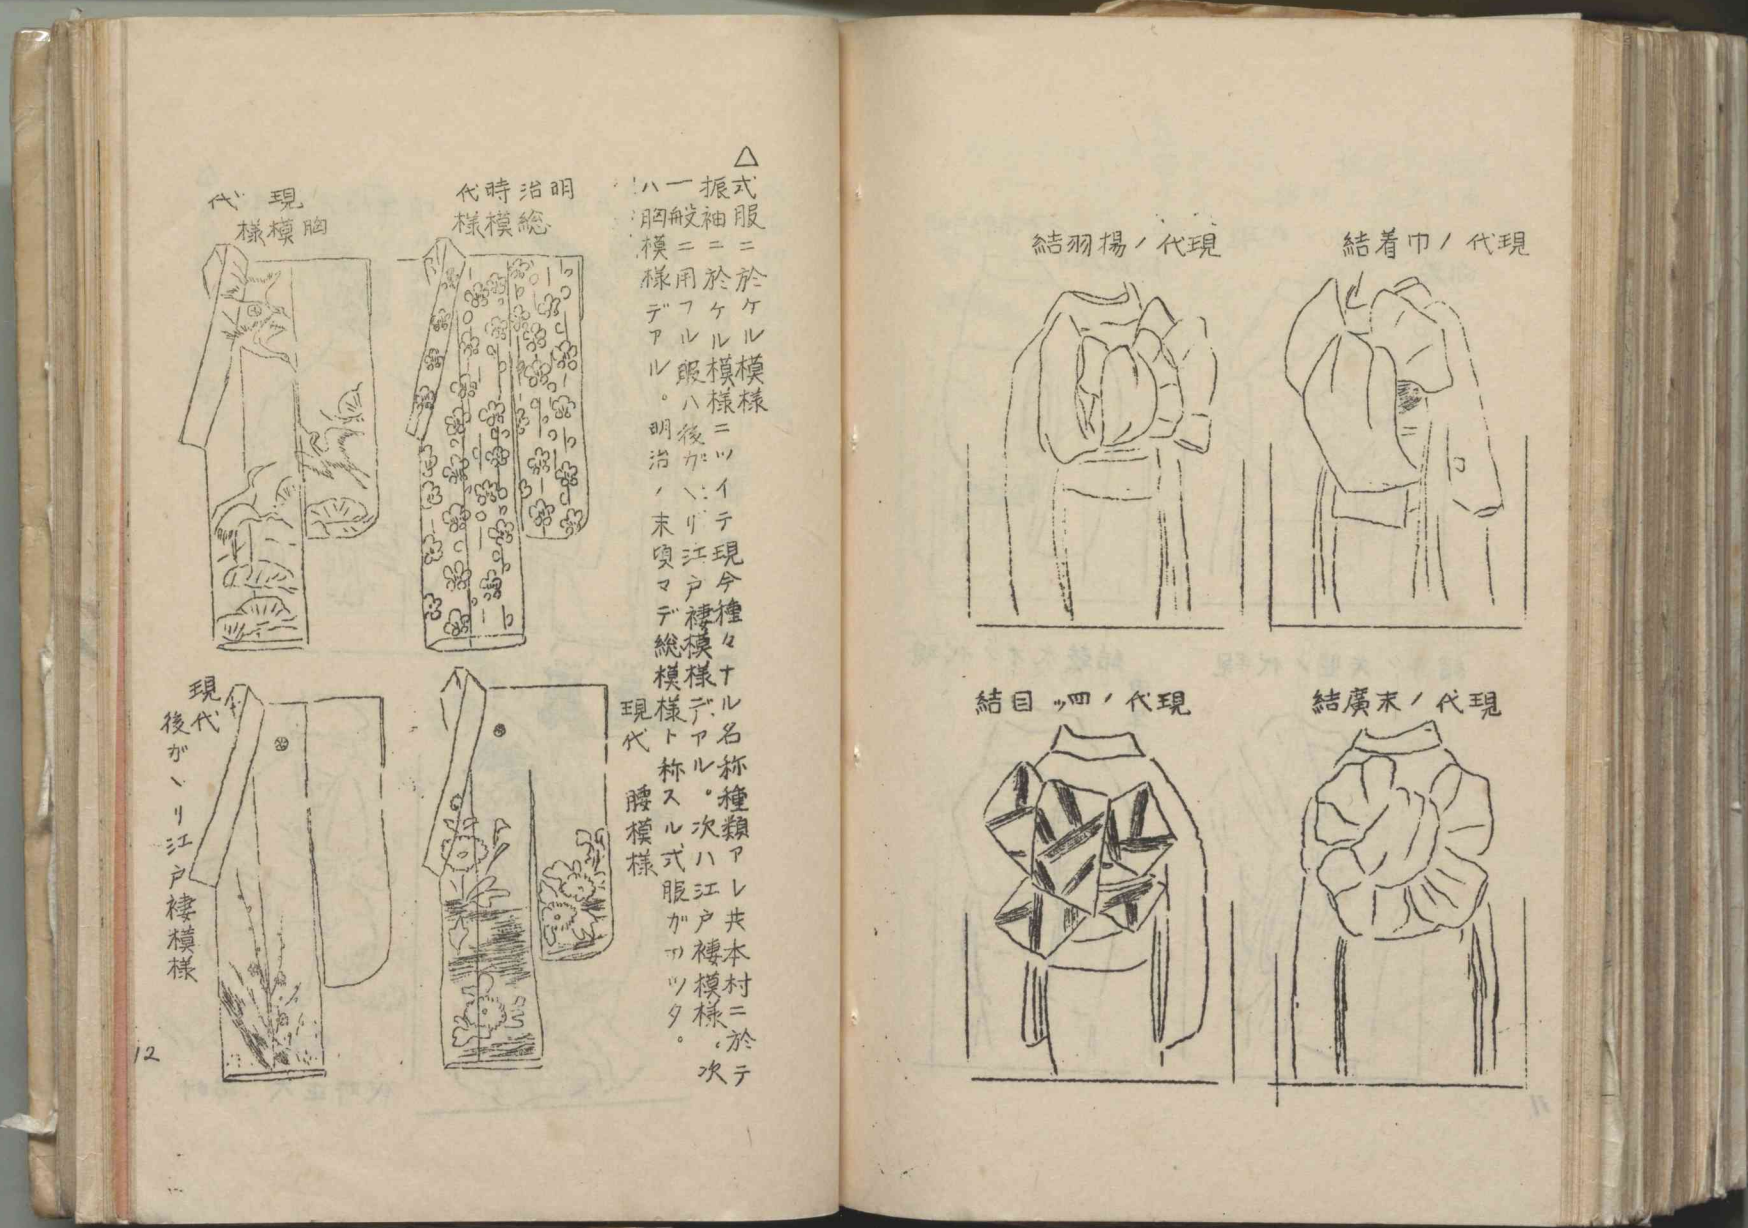 現代ノ巾着結
現代ノ揚羽結
現代ノ末廣結
現代ノ四ッ目結
△式服ニ於ケル模様
振袖ニ於ケル模様ニツイテ現今種々ナル名称種類アレ共本村ニ於テ
一般ニ用フル服ハ後ガヽリ江戸褄模様デアル。次ハ江戸褄模様、次
ハ胸模様デアル。明治ノ末頃マデ総模様ト称スル式服ガアッタ。
明治時代
総模様
現代
胸模様
現代 腰模様
現代
後ガヽリ江戸褄模様
12